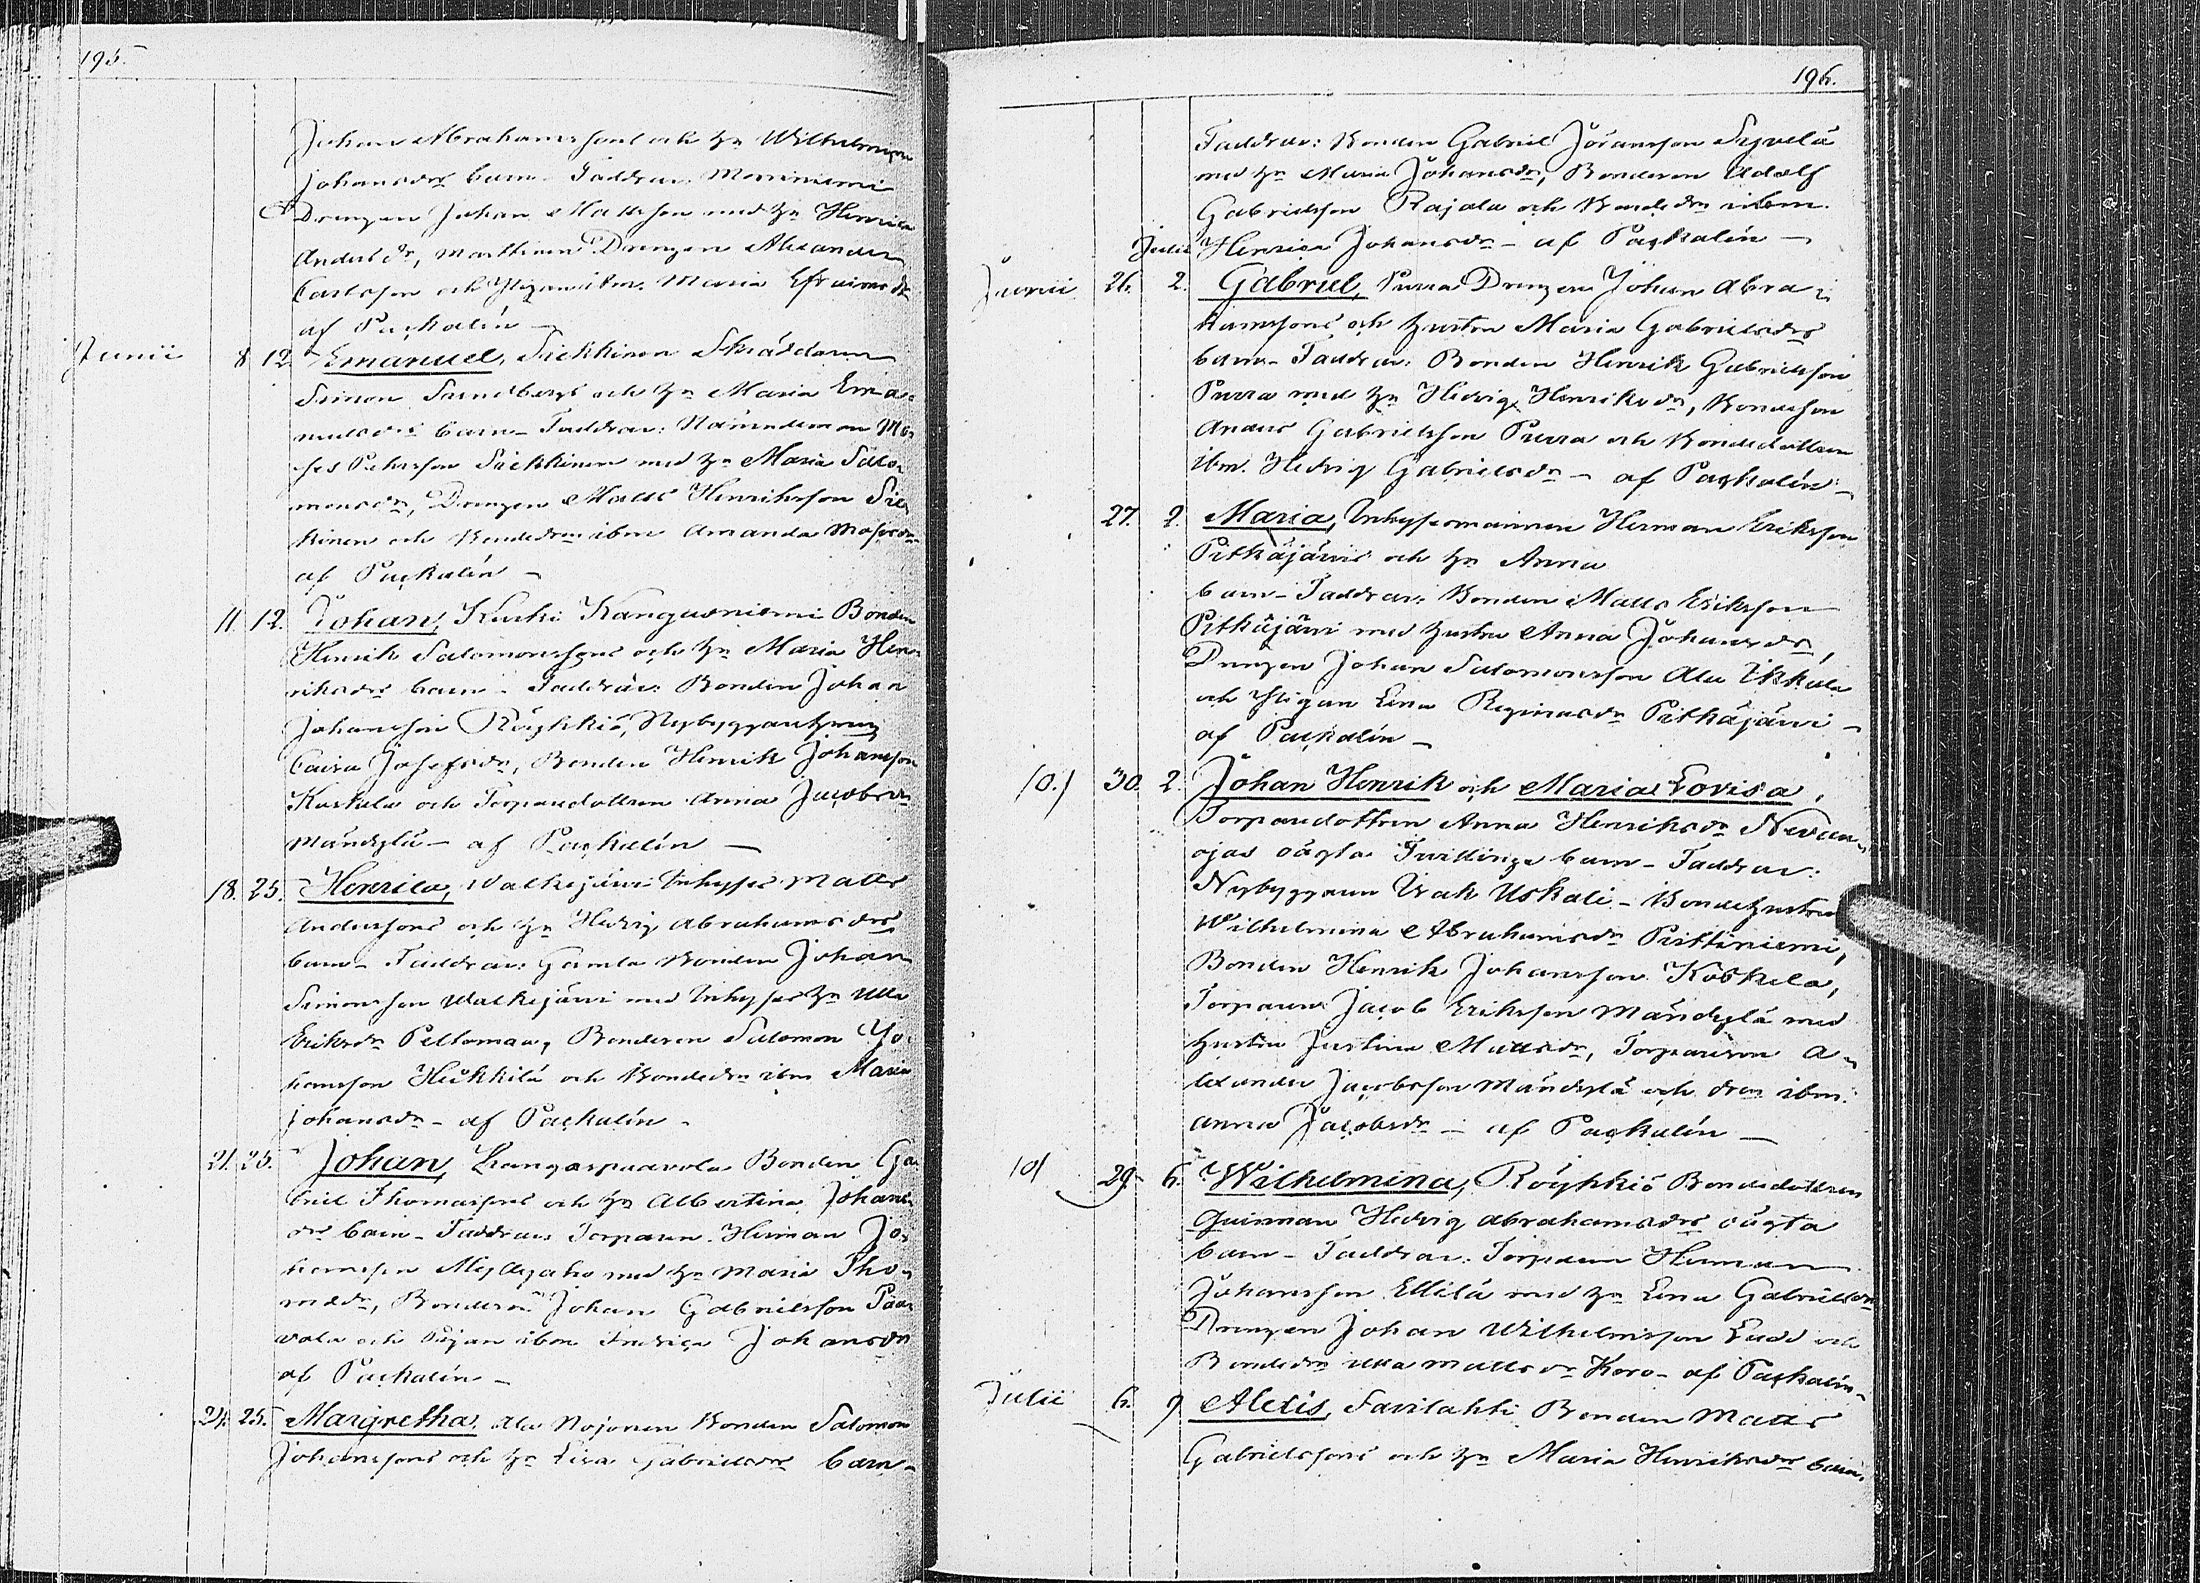 195.
Johan Abrahamssons och hu Wilhelmina
Johansdrs barn. Faddrar: Monniemi
Drengen Johan Mattsson med hu Henrica
Andersdr, Drengen Alexander
Carlsson och Pigan ibm. Maria Efraimsdr
af Packalén –
Junii 8. 12. Emanuel, Siekkinen Skräddaren
Simon Sundbergs och hu Maria Ema-
nuelsdrs barn – Faddrar: Nämndeman Mo-
ses Pehrsson Siekkinen med hu Maria Salo-
monsdr, Drengen Matts Henriksson Siek-
kinen och Bondedrn ibm Amanda Mosesdr
af Packalén –
11. 12. Johan, Kurki Kangasniemi Bonden
Henrik Salomonssons och hu Maria Hen-
riksdrs barn – Faddrar: Bonden Johan
Johansson Röyhkiö, Nybyggarehustrun
Caisa Josefsdr, Bonden Henrik Johansson
Koskela och Torparedottren Anna Jacobsdr
Mändylä – af Packalén –
18. 25. Henrica, Walkejärvi Inhyses Matts
Anderssons och hu Hedvig Abrahamsdrs
barn – Faddrar: Gamla Bonden Johan
Simonsson Walkejärvi med Inhyses hu Ulla
Eriksdr Peltomaa, Bondeson Salomon Jo-
hansson Heikkilä och Bondedrn ibm Maria
Johansdr – af Packalén –
21. 25. Johan, Kangaspaavola Bonden Ga-
briel Thomassons och hu Albertina Johans-
drs barn – Faddrar: Torparen Herman Jo-
hansson Myllyaho med hu Maria Tho-
masdr, Bondeson Johan Gabrielsson Paa-
vola och Pigan ibm Fredrica Johansdr
af Packalén –
24. 25. Margretha, Ala Nojonen Bonden Salomon
Johanssons och hu Lisa Gabrielsdrs barn –
196.
Faddrar: Bonden Gabriel Johansson Sipelä
med hu Maria Johansdr, Bondeson Adolf
Gabrielsson Rajala och Bondedrn ibm.
Julii Henrica Johansdr – af Packalén –
Junii 26. 2. Gabriel, Purra Drengen Johan Abra-
hamssons och hustru Maria Gabrielsdrs
barn – Faddrar: Bonden Henrik Gabrielsson
Purra med hu Hedvig Henriksdr, Bondeson
Anders Gabrielsson Purra och Bondedottren
ibm. Hedvig Gabrielsdr – af Packalén –
27. 2. Maria, Inhysesmannen Herman Eriksson
Pitkäjärvis och hu Anna
barn – Faddrar: Bonden Matts Eriksson
Pitkäjärvi med hustru Anna Johansdr,
Drengen Johan Salomonsson Ala Ikkala
och Pigan Lena Reginasdr Pitkäjärvi –
af Packalén –
10.) 30. 2. Johan Henrik och Maria Lovisa,
Torparedottren Anna Henriksdr Nevan-
ojas oägta Tvillinge barn – Faddrar:
Nybyggaren Isak Uskali – Bondehustru
Wilhelmina Abrahamsdr Peittiniemi,
Bonden Henrik Johansson Koskela,
Torparen Jacob Eriksson Mändylä med
hustru Justina Mattsdr, Torpareson A-
lexander Jacobsson Mändylä och drn ibm.
Anna Jacobsdr – af Packalén –
10) 29. 6. Wilhelmina, Röyhkiö Bondedottren
Qvinnan Hedvig Abrahamsdrs oägta
barn – Faddrar: Torparen Herman
Johansson Ellilä med hu Lena Gabrielsdr
Drengen Johan Wilhelmsson Luas och
Bondedrn Ulla Mattsdr Koro – af Packalén –
Julii 6. 9. Alexis, Savilahti Bonden Matts
Gabrielssons och hu Maria Henriksdrs barn.